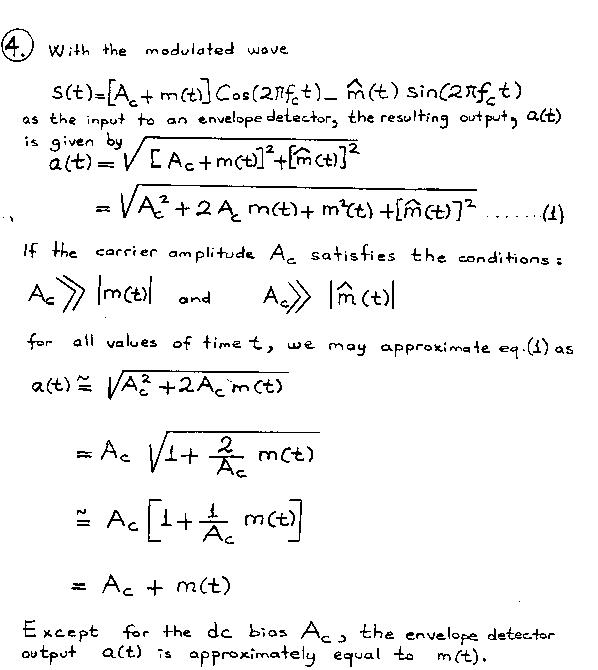 4. With the modulated wave
s(t)=[A_c + m(t)] Cos(2πf_c t) – m̂(t) sin(2πf_c t)
as the input to an envelope detector, the resulting output, a(t)
is given by
a(t) = √([A_c + m(t)]² + [m̂(t)]²)
= √(A_c² + 2 A_c m(t) + m²(t) + [m̂(t)]²) ......(1)
If the carrier amplitude A_c satisfies the conditions :
A_c ≫ |m(t)| and A_c ≫ |m̂(t)|
for all values of time t, we may approximate eq.(1) as
a(t) ≅ √(A_c² + 2A_c m(t))
= A_c √(1 + 2/A_c m(t))
≅ A_c [1 + 1/A_c m(t)]
= A_c + m(t)
Except for the dc bias A_c, the envelope detector
output a(t) is approximately equal to m(t).